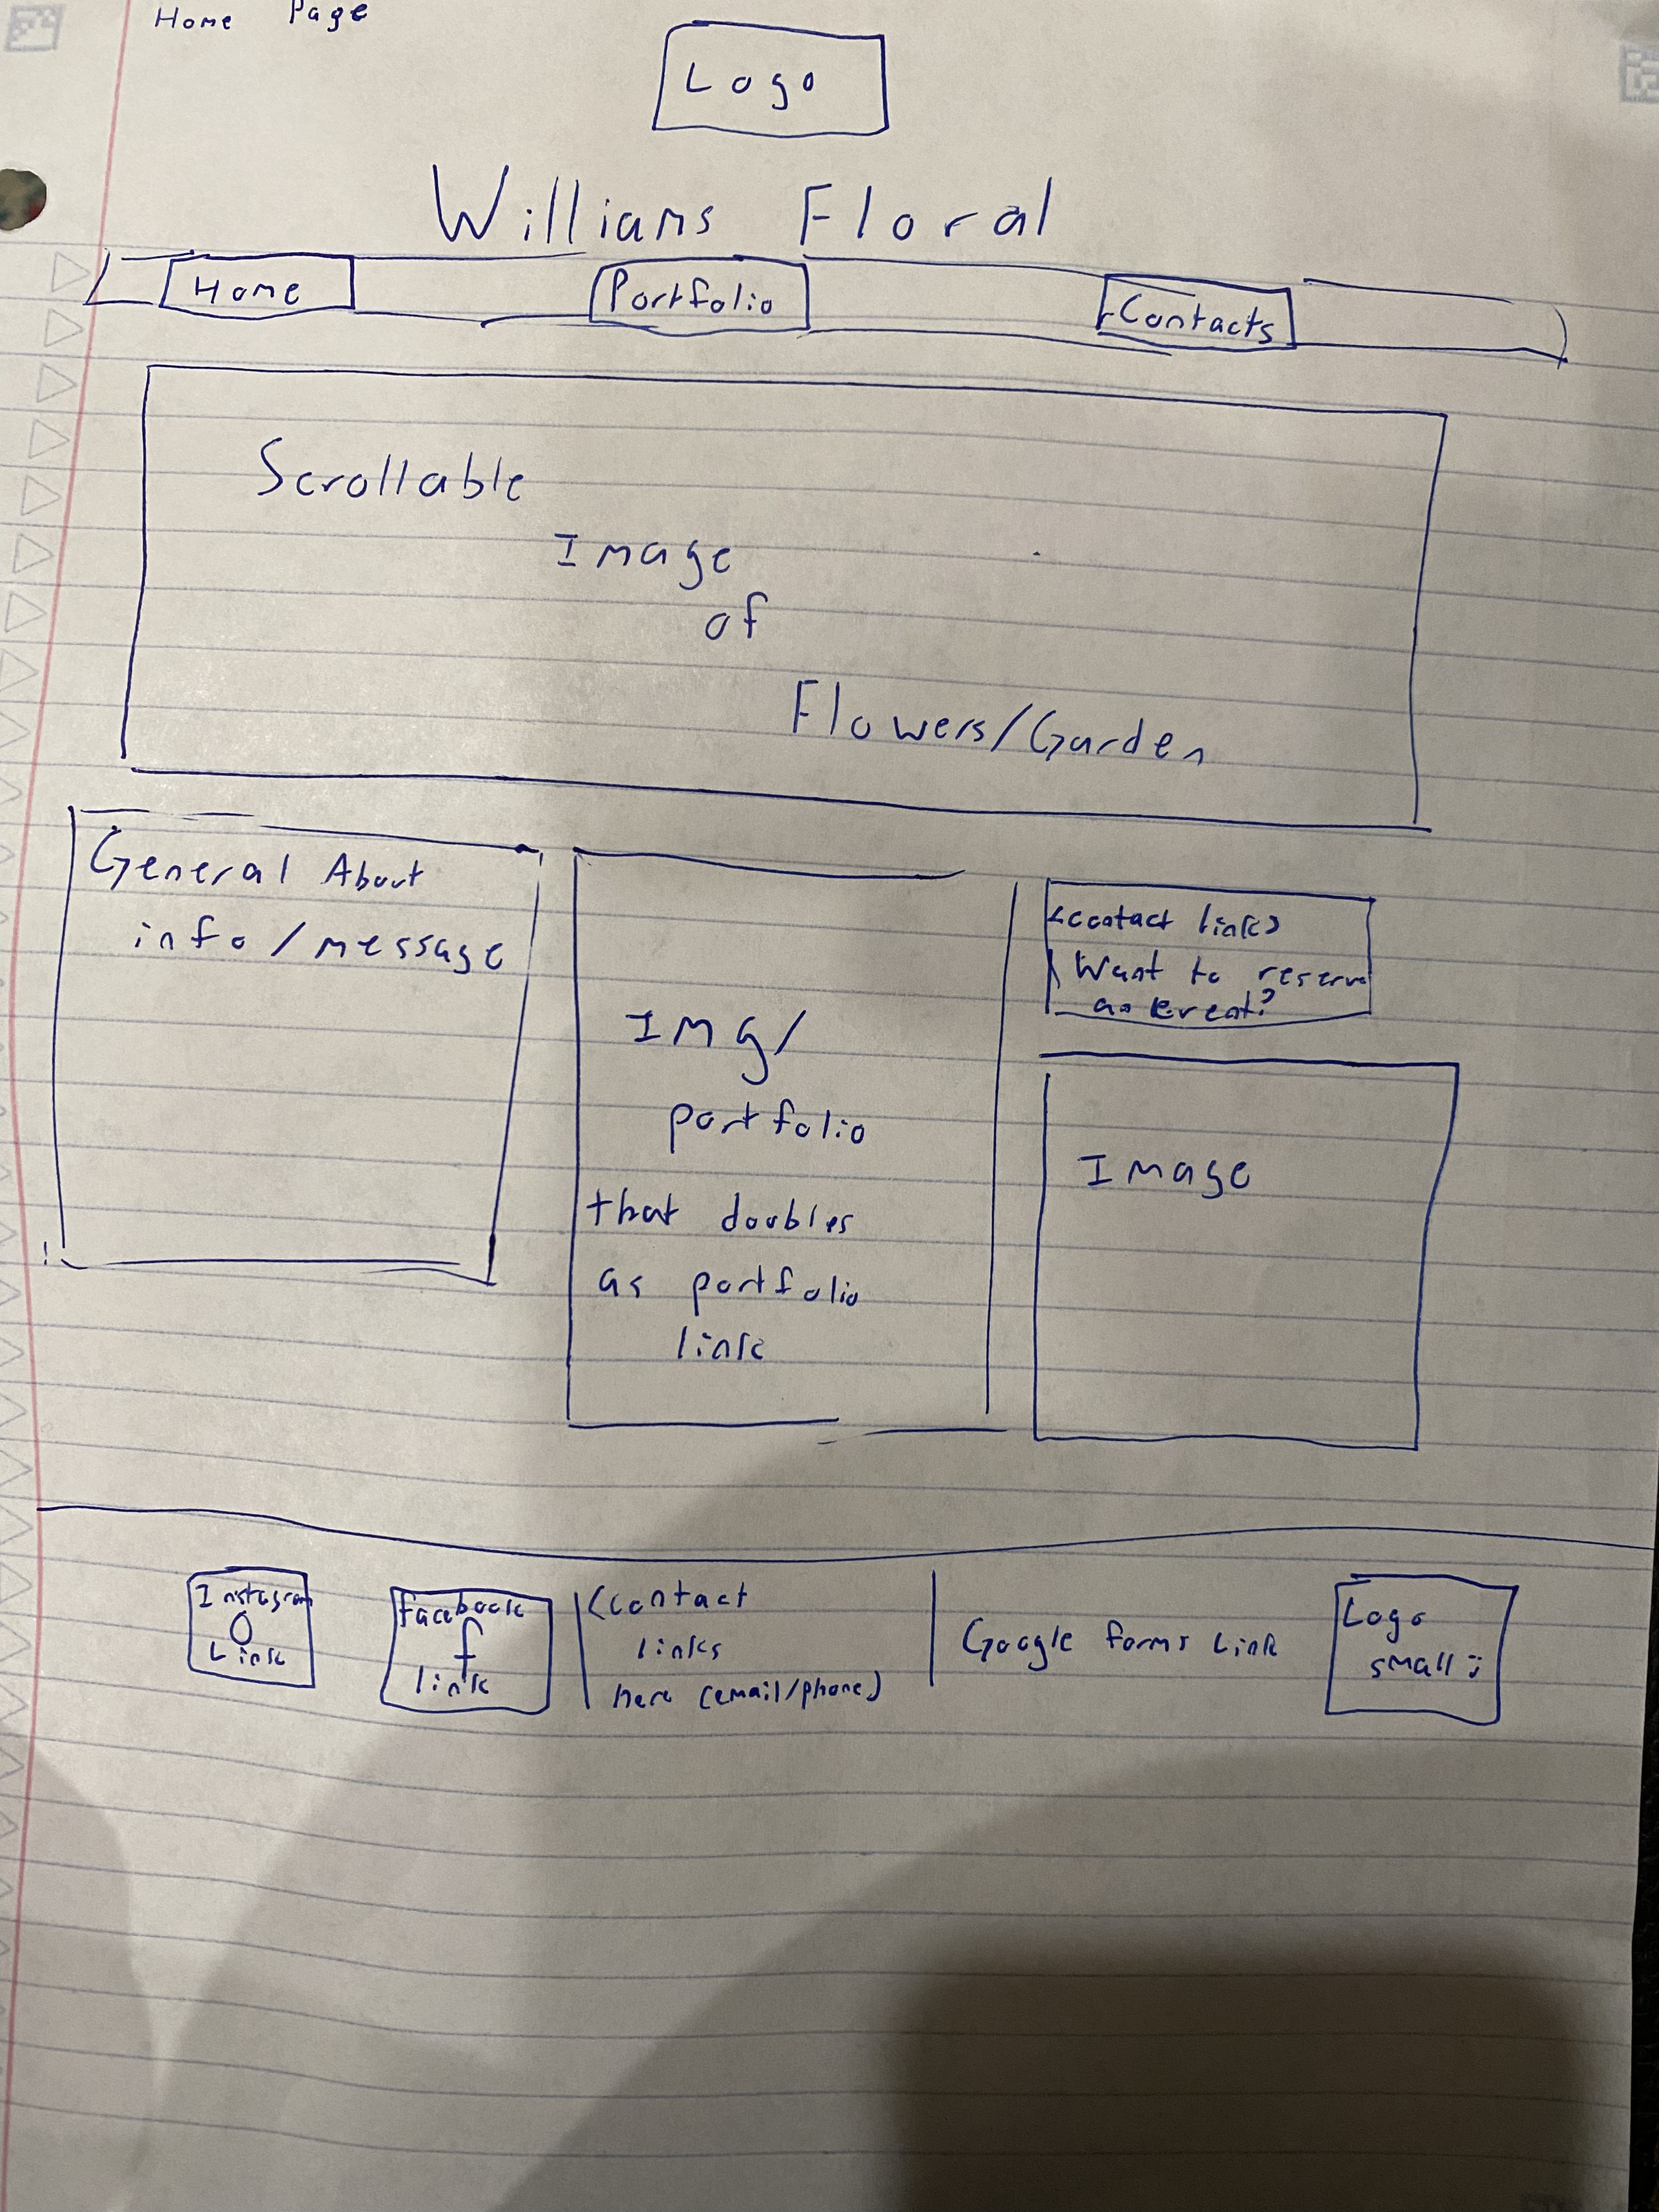 Home Page
Logo
Willians Floral
Home
Portfolio
Contacts
Scrollable
Image
of
Flowers/Garden
General About
info/message
Img/
portfolio
that doubles
as portfolio
link
<contact link>
Want to reserve
an Event?
Image
Instagram
Link
facebook
f
link
(contact
links
here (email/phone)
Google forms Link
Logo
small :)